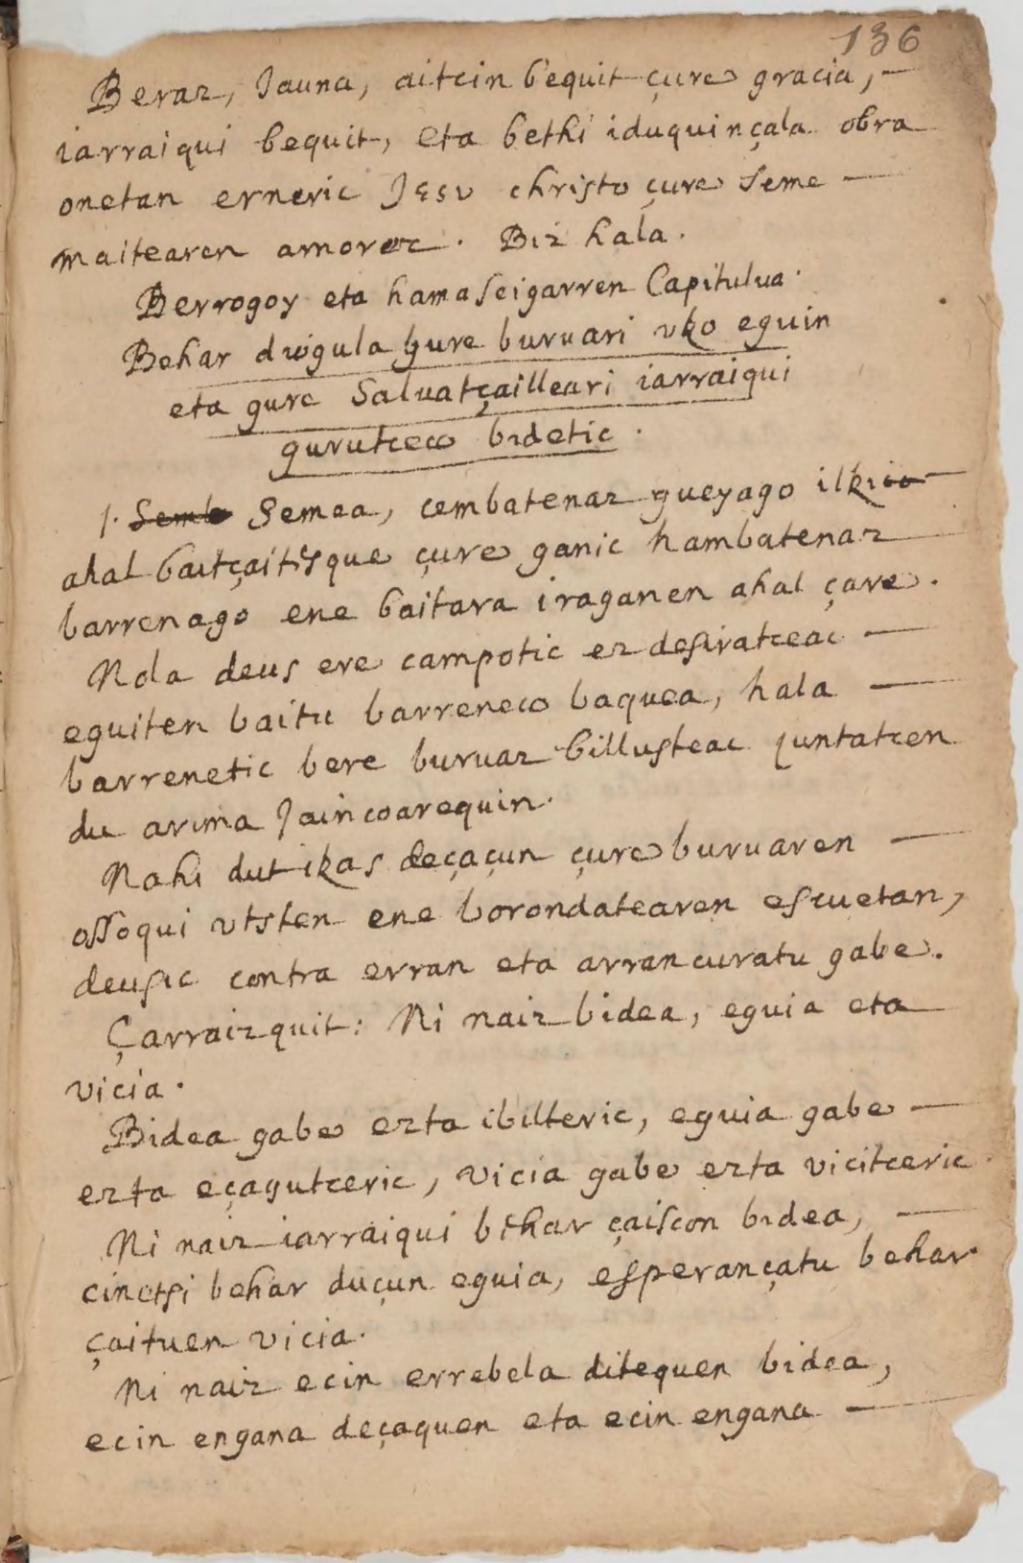 136
Beraz, Jauna, aitcin bequit çure gracia, —
iarraiqui bequit, eta bethi iduquinçala obra
onetan erneric Jesu christo çure seme —
maitearen amorez. Biz hala.
Berrogoy eta hamaseigarren Capitulua.
Behar dugula gure buruari uko eguin
eta gure Saluatçailleari iarraiqui
gurutceco bidetic.
1. Semea, cembatenaz gueyago ilki —
ahal baitçaitesque çure ganic hambatenaz
barrenago ene baitara iraganen ahal çare.
Nola deus ere campotic ez desiratceac —
eguiten baitu barreneco baquea, hala —
barrenetic bere buruaz billusteac juntatcen
du arima Jaincoarequin.
Nahi dut ikas deçaçun çure buruaren —
ossoqui utsten ene borondatearen escuetan,
deusic contra erran eta arrancuratu gabe.
Çarraizquit: Ni naiz bidea, eguia eta
vicia.
Bidea gabe ezta ibilteric, eguia gabe —
ezta eçagutceric, vicia gabe ezta vicitceric.
Ni naiz iarraiqui behar çaiscon bidea, —
cinetsi behar duçun eguia, esperançatu behar
çaituen vicia.
Ni naiz ecin errebela ditequen bidea,
ecin engana deçaquen eta ecin engana —